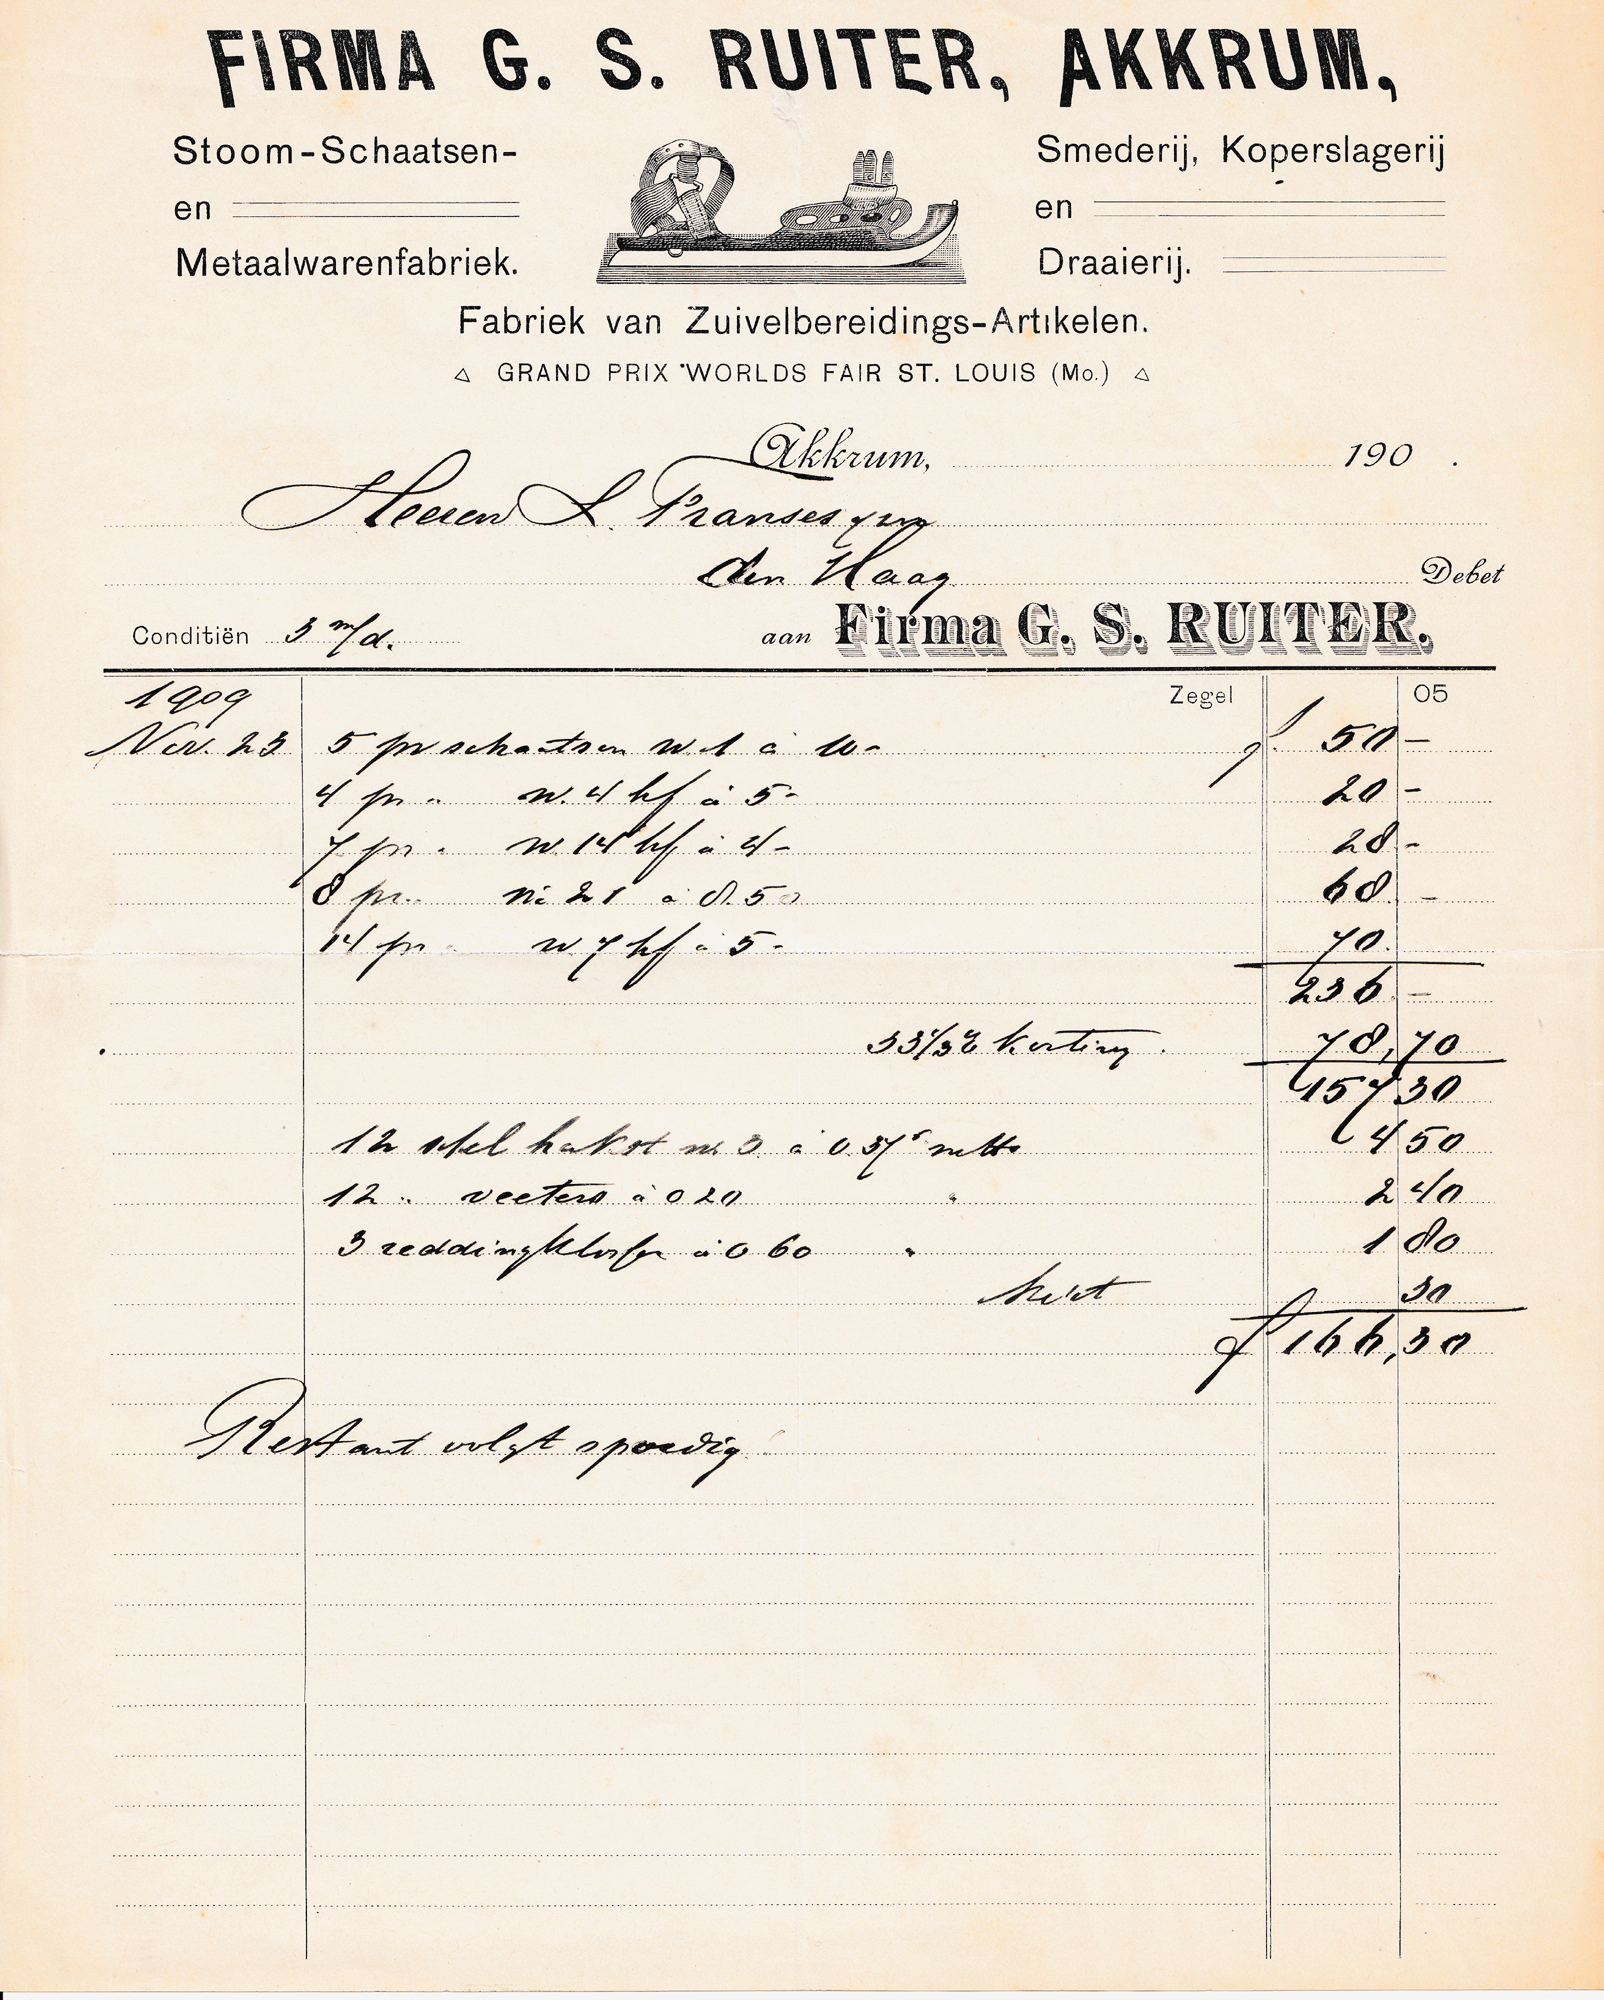 FIRMA G. S. RUITER, AKKRUM,
Stoom-Schaatsen-
en
Metaalwarenfabriek.
Smederij, Koperslagerij
en
Draaierij.
Fabriek van Zuivelbereidings-Artikelen.
GRAND PRIX WORLDS FAIR ST. LOUIS (Mo.)
Akkrum, 190 .
Heeren L. Franses
den Haag Debet
Conditiën 3 m/d. aan Firma G. S. RUITER.
1909 Zegel 05
Nov. 23 5 pr schaatsen no 1 à 10- f. 50 -
4 pr " no. 4 hf à 5- 20 -
7 pr " no. 14 hf à 4- 28 -
8 pr " no 21 à 8.50 68 -
14 pr " no 7 hf à 5- 70.
236 -
33 1/3 % korting. 78,70
157 30
12 stel no 3 à 0 37⁵ netto 4 50
12 " veeters à 0 20 " 2 40
3 à 0 60 " 1 80
kist 30
f 166,30
Restant volgt spoedig